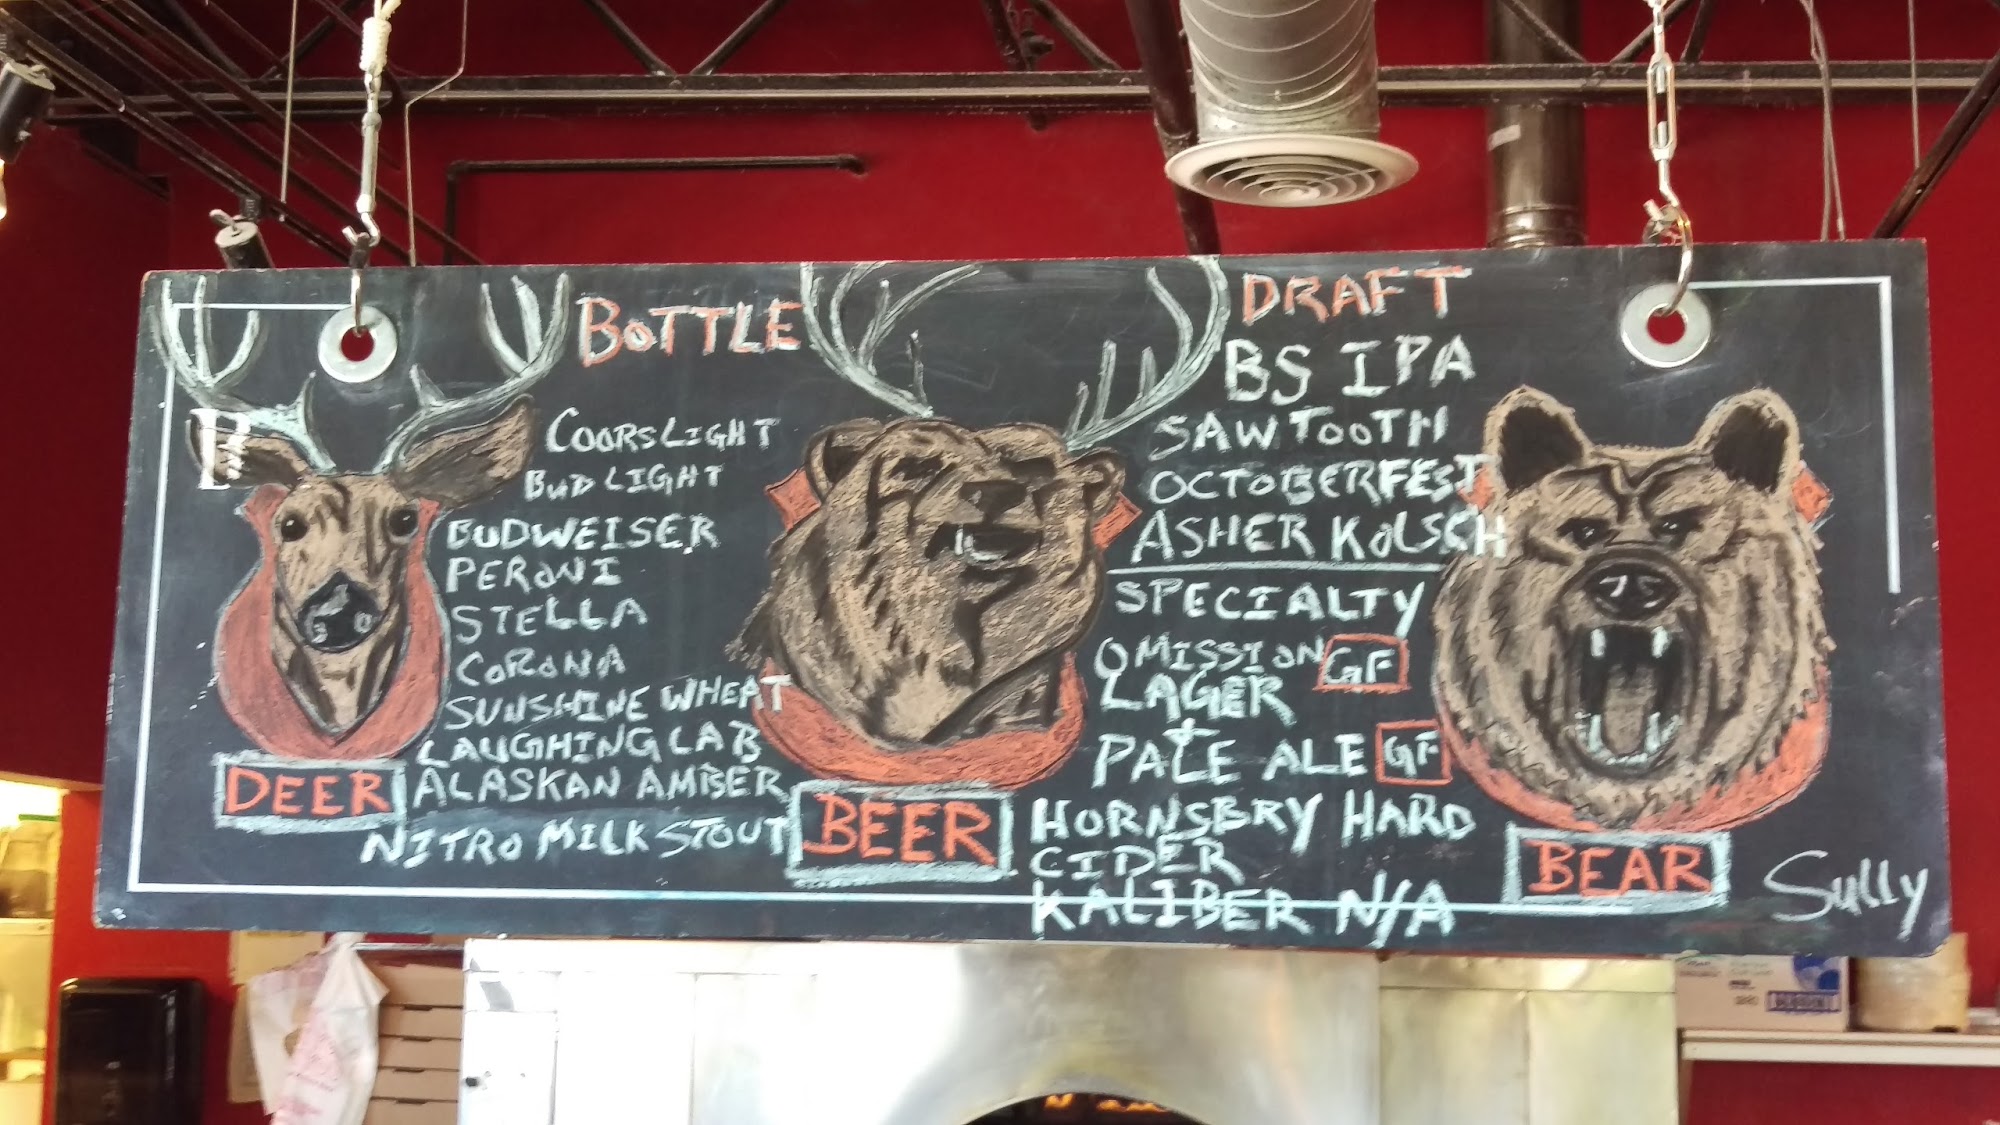 BOTTLE
COORS LIGHT
BUD LIGHT
BUDWEISER
PERONI
STELLA
CORONA
SUNSHINE WHEAT
LAUGHING LAB
ALASKAN AMBER
NITRO MILK STOUT
DEER
BEER
DRAFT
BS IPA
SAWTOOTH
OCTOBERFEST
ASHER KOLSCH
SPECIALTY
OMISSION GF
LAGER
+
PALE ALE GF
HORNSBRY HARD
CIDER
KALIBER N/A
BEAR
Sully